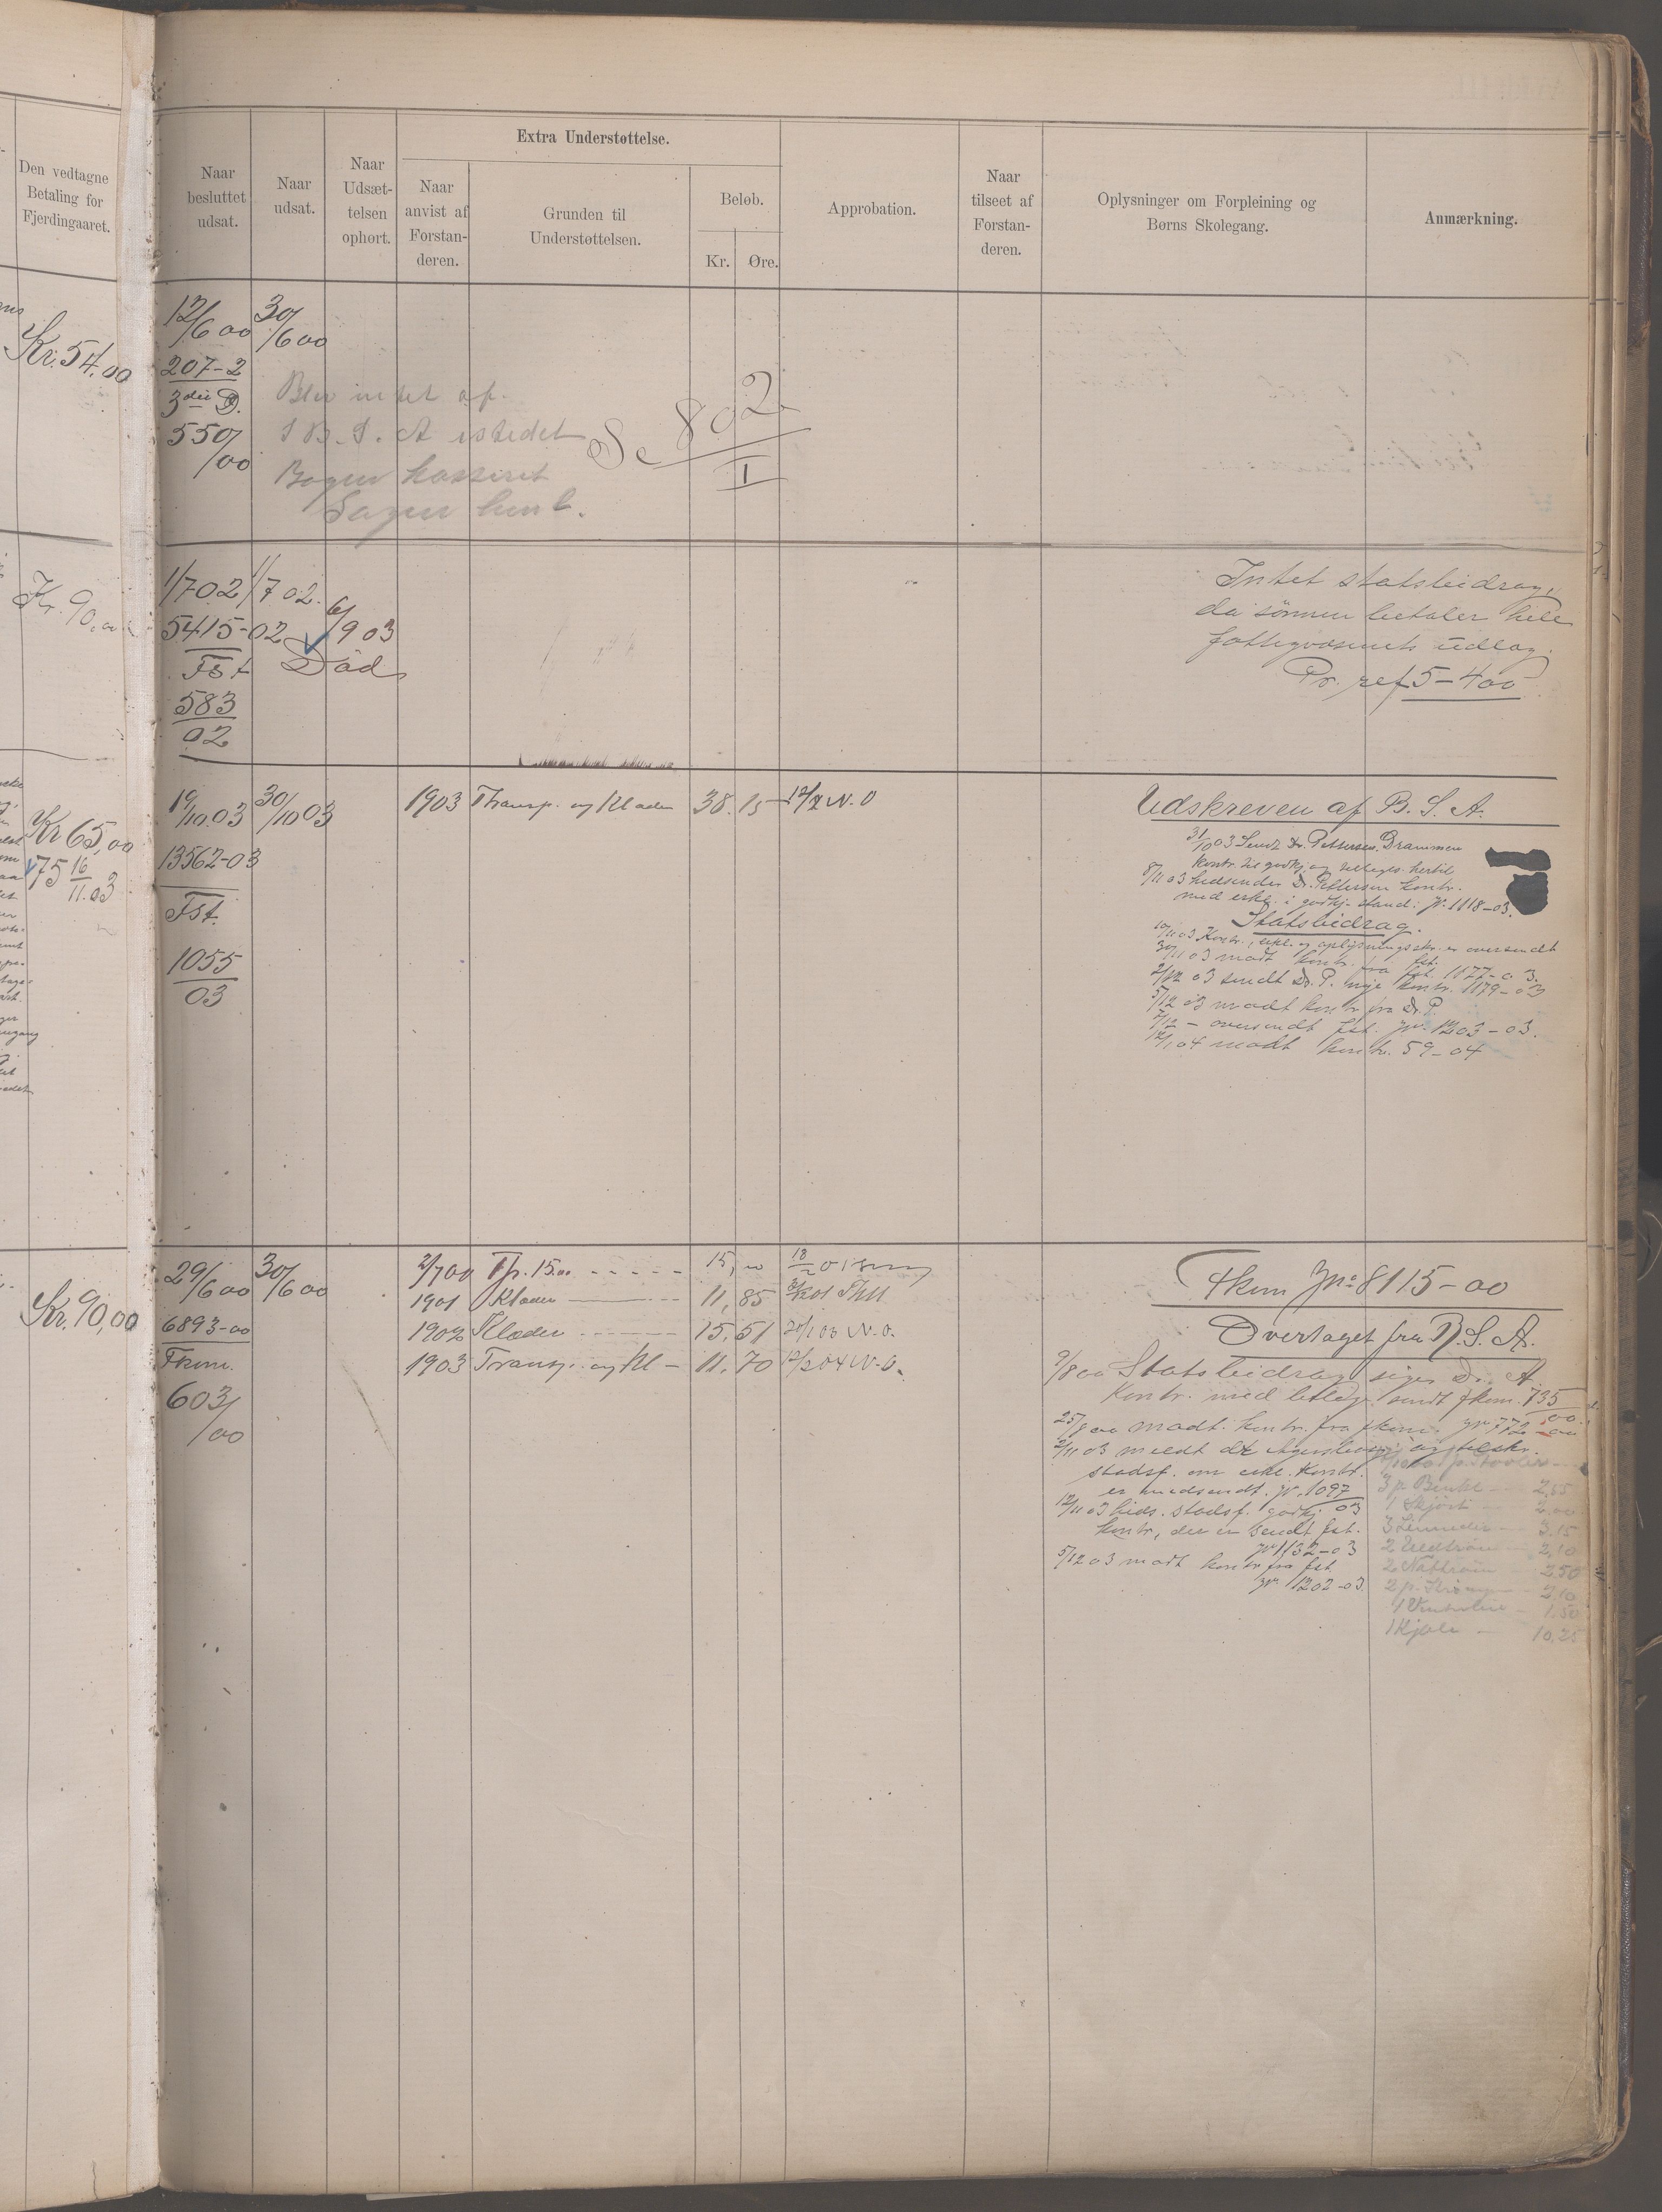 Den vedtagne
Betaling for
Fjerdingaaret.
Kr. 54.00
Kr. 90,00
Kr 65,00
75 16/11.03
Kr. 90,00
Naar
besluttet
udsat.
Naar
udsat.
Naar
Udsæt-
telsen
ophørt.
Extra Understøttelse.
Naar
anvist af
Forstan-
deren.
Grunden til
Understøttelsen.
Beløb.
Kr. Øre.
Approbation.
Naar
tilseet af
Forstan-
deren.
Oplysninger om Forpleining og
Børns Skolegang.
Anmærkning.
12/6 00 30/6 00
207-2
3die D.
550/00
Blev intet af.
I B. S. A istedet
Bogen kasseret
Sagen henl.
Se 802/I
1/7 02 1/7 02. 6/9 03
5415-02 Död
Fst
583
02
Intet statsbidrag,
da sönnen betaler hele
fattigvæsenets udlæg.
Pr. ref 5-400
19/10.03 30/10 03
13562-03
Fst.
1055
03
1903 Transp. og Klæder 38.15 12/2 N.O
Udskreven af B. S. A.
31/10 03 Sendt Dr. Pettersen. Drammen
kontr. til godkj. og
8/11 03 hidsender Dr. Pettersen kontr.
med erkl. i godkj. stand: Jr. 1118-03.
Statsbidrag.
10/11 03 Kontr., erkl. og oplysningsskr. er oversendt fst.
30/11 03 modt kontr. fra fst. 1177-03.
2/12 03 sendt Dr. P. nye kontr. 1179-03
5/12 03 modt kontr fra Dr P.
7/12 - oversendt fst. jr. 1203-03.
12/1 04 modt kontr. 59-04
29/6 00 30/6 00
6893-00
Fkom.
603/00
2/7 00 Tp. 15.00 15,00 18/2 01
1901 Klæder 11,85
1902 Klæder 15,51 20/1 03 N.O.
1903 Transp. og Kl - 11,70 12/2 04 N.O.
Fkom Jno 8115-00
Overtaget fra B. S. A.
9/8 00 Statsbidrag siger Dr. A.
Kontr. med bilag sendt fkom. 735/00.
25/8 00 modt. kontr. fra fkom. jr 772-00
2/11 03 meldt
stadsf. om erkl. Kontr.
er medsendt. jr. 1097/03
12/11 03 hids. stadsf. godkj.
kontr, der er sendt fst.
jr 1132-03
5/12 03 modt kontr fra fst
jr. 1202-03.
3 p Benkl 2,55
1 Skjört 2,00
3 3,15
2 Uldtröier 2,10
2 Nattröier 2,50
2 p. 2,10
1 1,50
1 Kjole 10,25